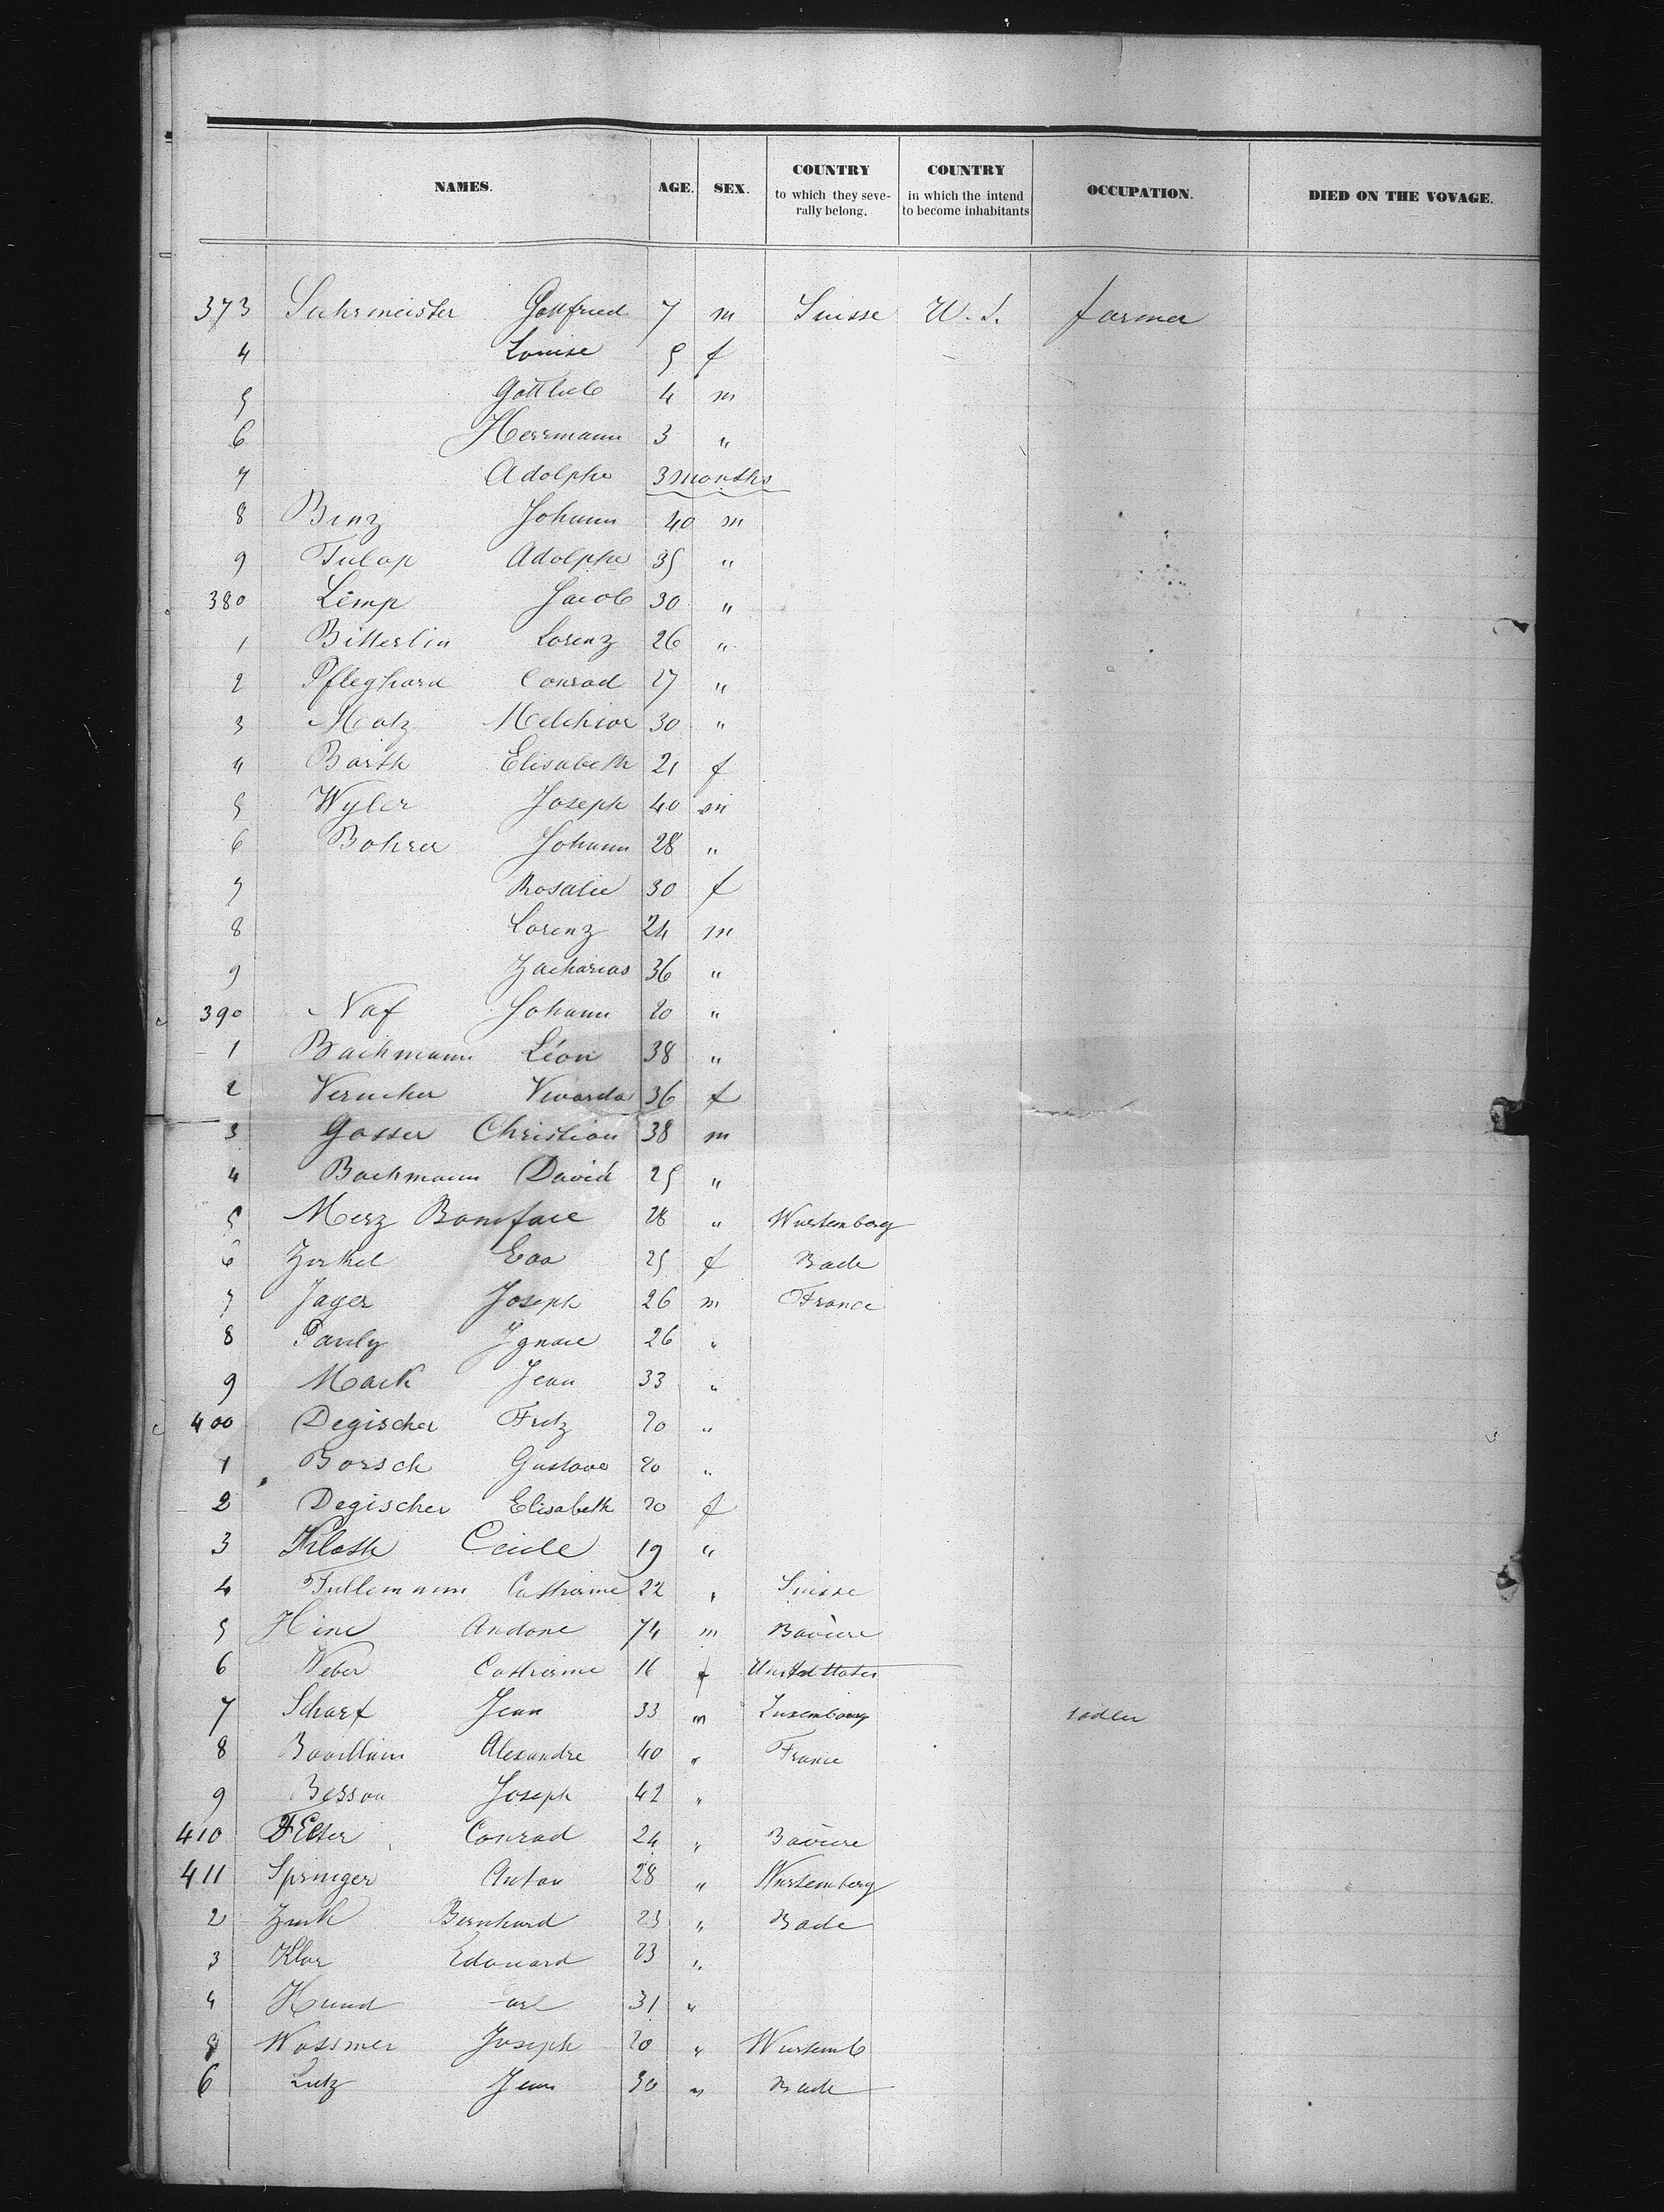 NAMES. AGE. SEX. COUNTRY to which they seve- rally belong. COUNTRY in which the intend to become inhabitants OCCUPATION. DIED ON THE VOVAGE.
373 Suhrmeister Gottfried 7 m Suisse U. S. farmer
4 Louise 5 f
5 Gottlieb 4 m
6 Herrmann 3 "
7 Adolphe 3 months
8 Binz Johann 40 m
9 Tulop Adolphe 35 "
380 Limp Jacob 30 "
1 Bitterlin Lorenz 26 "
2 Pfleghard Conrad 27 "
3 Motz Melchior 30 "
4 Barth Elisabeth 21 f
5 Wyler Joseph 40 m
6 Bohrer Johann 28 "
7 Rosalie 30 f
8 Lorenz 24 m
9 Zacharias 36 "
390 Naf Johann 20 "
1 Bachmann Léon 38 "
2 36 f
3 Gasser Christian 38 m
4 Bachmann David 25 "
5 Merz Boniface 28 " Wurtemberg
6 Zirkel Eva 25 f Bade
7 Jager Joseph 26 m France
8 Pauly Ignace 26 "
9 Mack Jean 33 "
400 Degischer Fritz 20 "
1 Borsch Gustave 20 "
2 Degischer Elisabeth 20 f
3 Kloth Cecile 19 "
4 Tullemann Catherine 22 " Suisse
5 Hine Andone 74 m Bavière
6 Weber Catherine 16 f United States
7 Scharf Jean 33 m Luxembourg sadler
8 Alexandre 40 " France
9 Besson Joseph 42 "
410 Conrad 24 " Bavière
411 Springer Anton 28 " Wurtemberg
2 Zink Bernhard 23 " Bade
3 Klar Edouard 23 "
4 Hund 31 "
5 Wassmer Joseph 20 " Wurtemb
6 Lutz Jean 30 " Bade